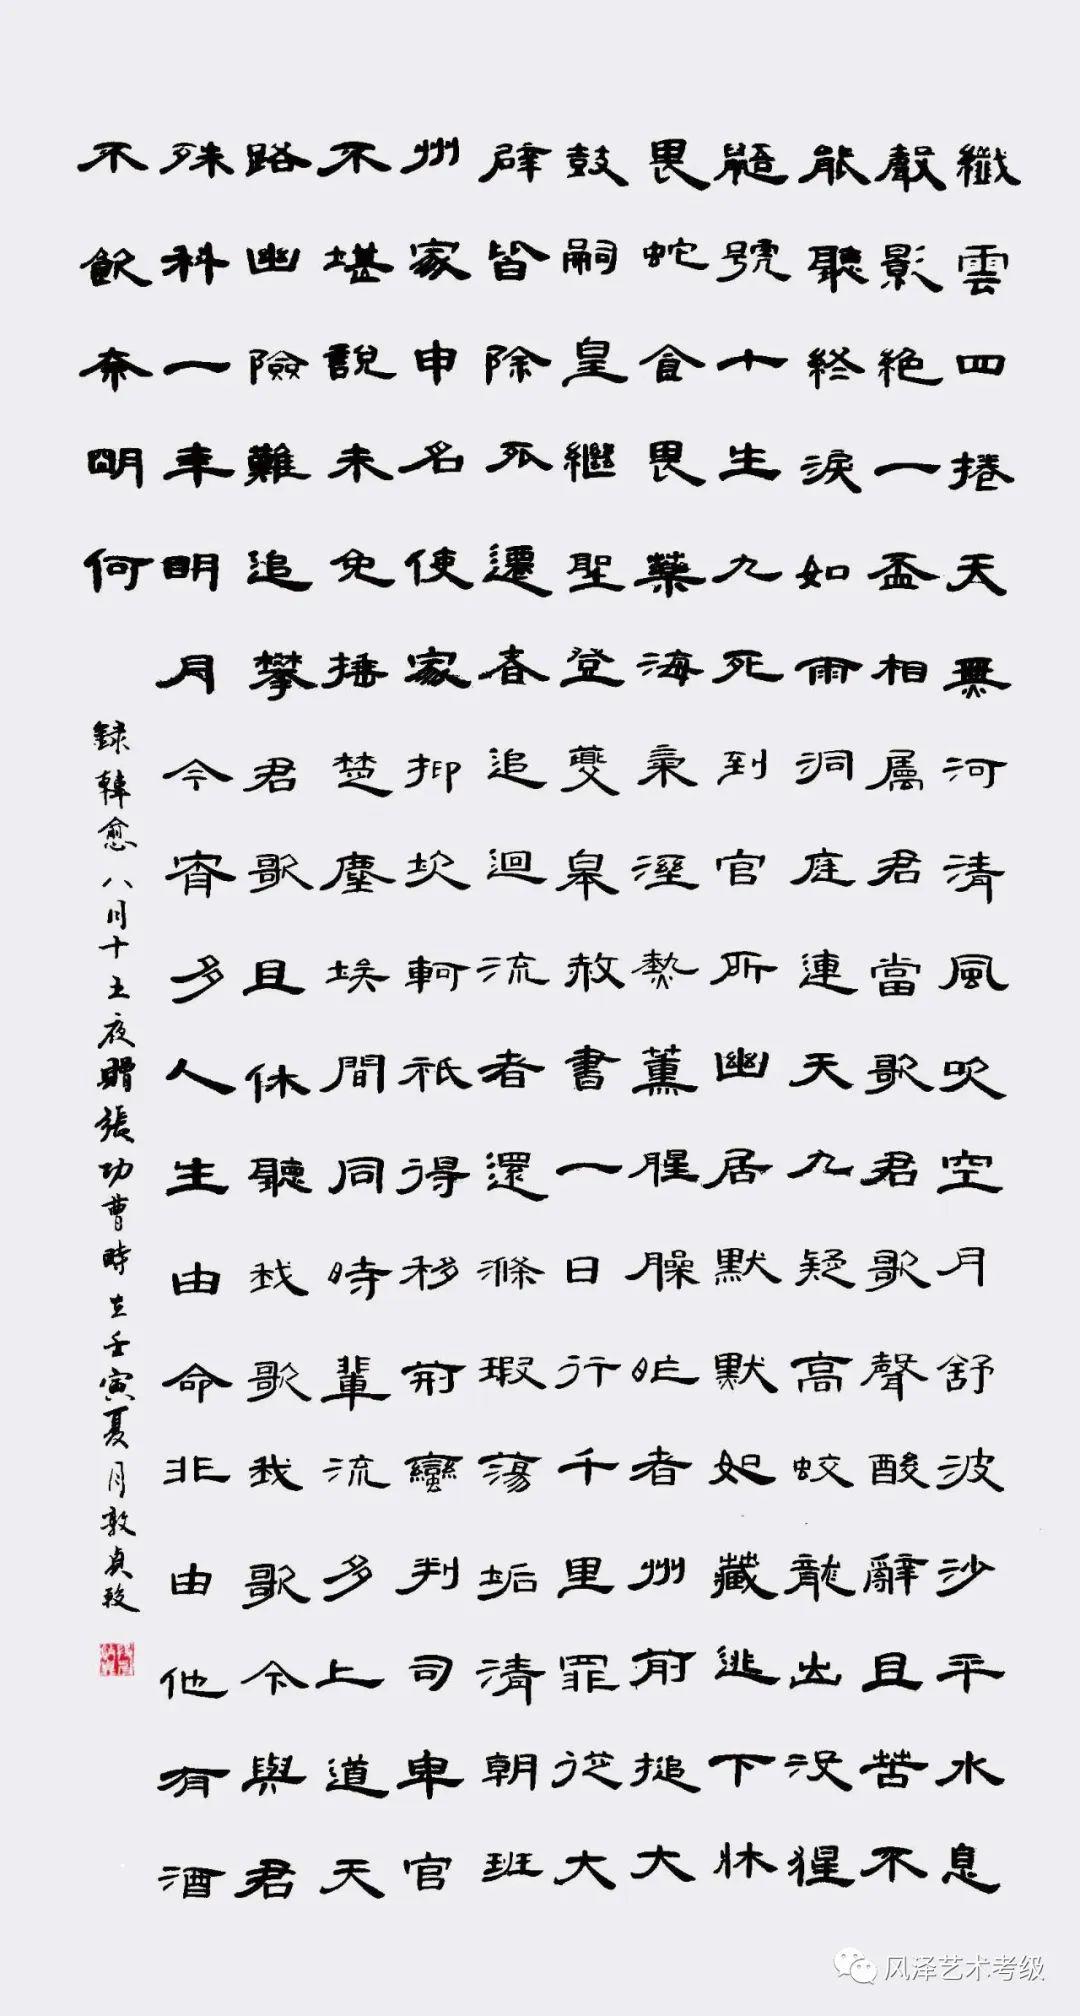 纖雲四捲天無河清風吹空月舒波沙平水息
聲影絕一盃相屬君當歌君歌聲酸辭且苦不
能聽終淚如雨洞庭連天九疑高蛟龍出沒猩
鼯號十生九死到官所幽居默默如藏逃下牀
畏蛇食畏藥海氣溼熱薰腥臊昨者州前搥大
鼓嗣皇繼聖登夔皋赦書一日行千里罪從大
辟皆除死遷春追迴流者還滌瑕蕩垢清朝班
州家申名使家抑坎軻祇得移荆蠻判司卑官
不堪說未免捶楚塵埃間同時輩流多上道天
路幽險難追攀君歌且休聽我歌我歌今與君
殊科一年明月今宵多人生由命非由他有酒
不飲奈明何
錄韓愈八月十五夜贈張功曹時在壬寅夏月敦貞
风泽艺术考级